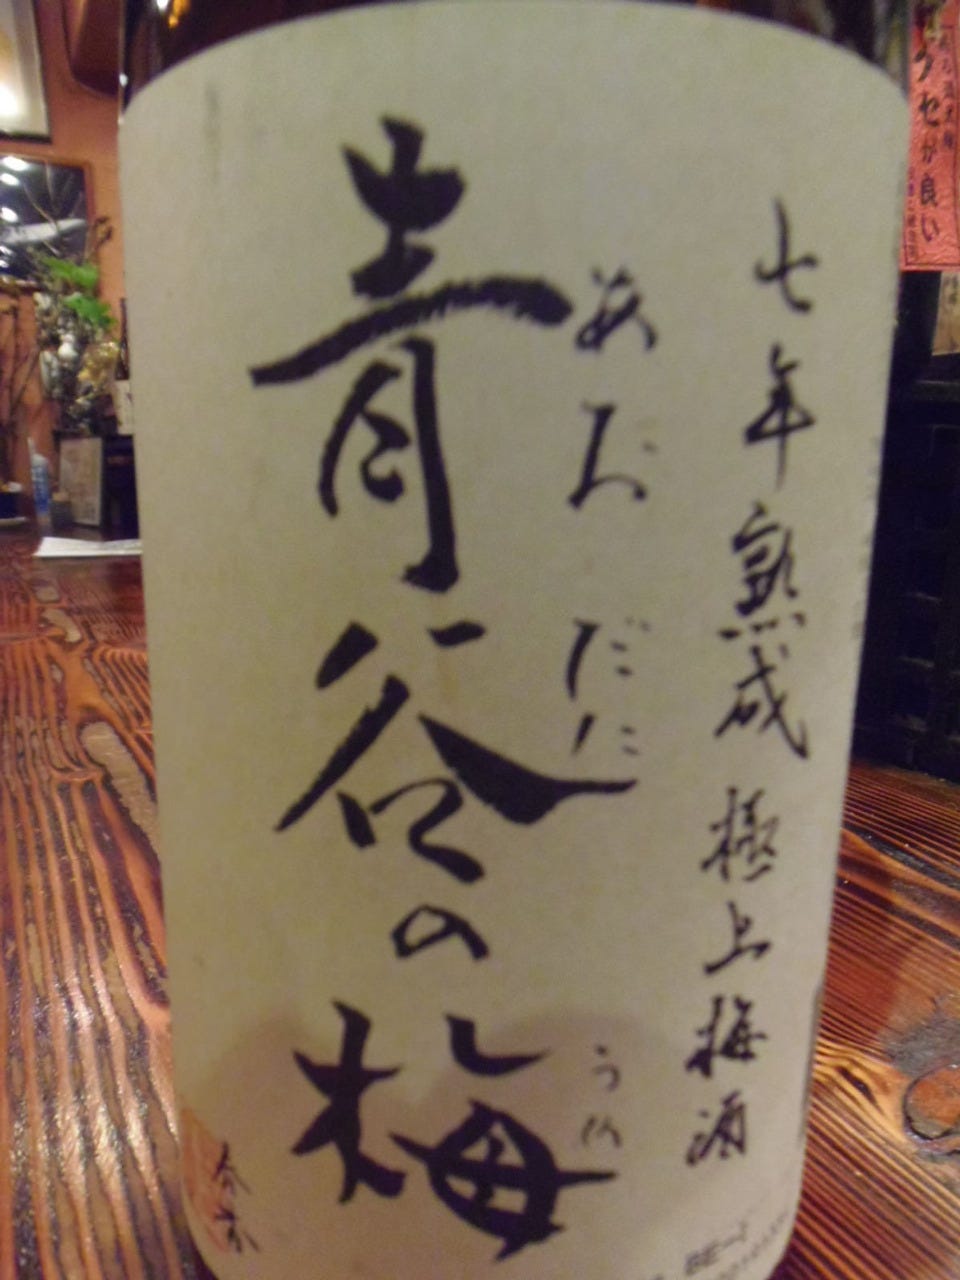 七年熟成 極上梅酒
あおだに
うめ
青谷の梅
クセが良い